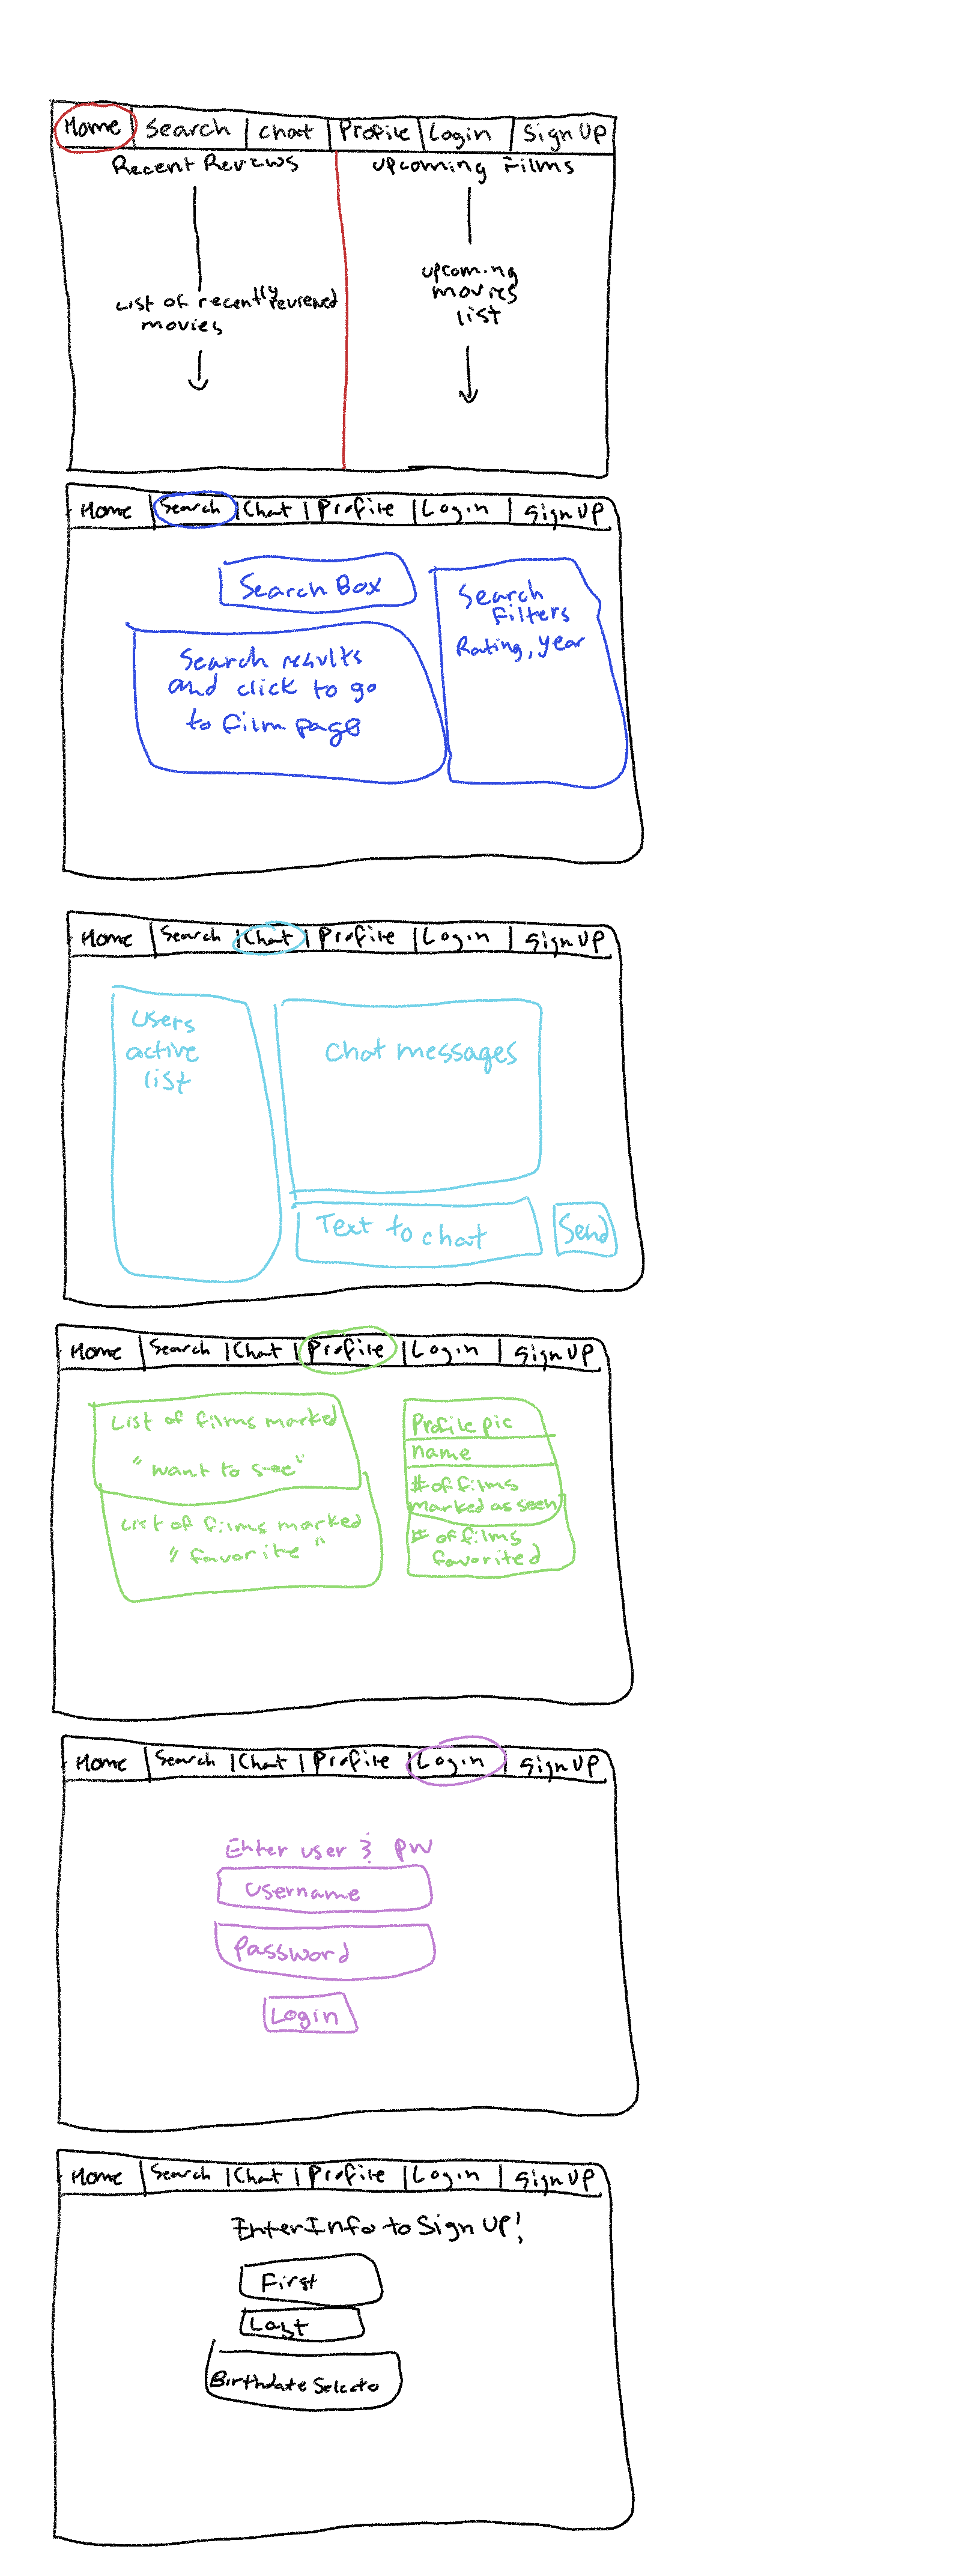 Home Search Chat Profile Login Sign UP
Recent Reviews Upcoming Films
List of recently reviewed
movies
upcoming
movies
list
Home Search Chat Profile Login Sign UP
Search Box
Search
Filters
Rating, year
Search results
and click to go
to film page
Home Search Chat Profile Login Sign UP
Users
active
list
Chat messages
Text to chat
Send
Home Search Chat Profile Login Sign UP
List of films marked
"want to see"
List of films marked
"favorite"
Profile pic
name
# of films
marked as seen
# of films
favorited
Home Search Chat Profile Login Sign UP
Enter user & PW
Username
Password
Login
Home Search Chat Profile Login Sign UP
Enter Info to Sign UP!
First
Last
Birthdate Selecto